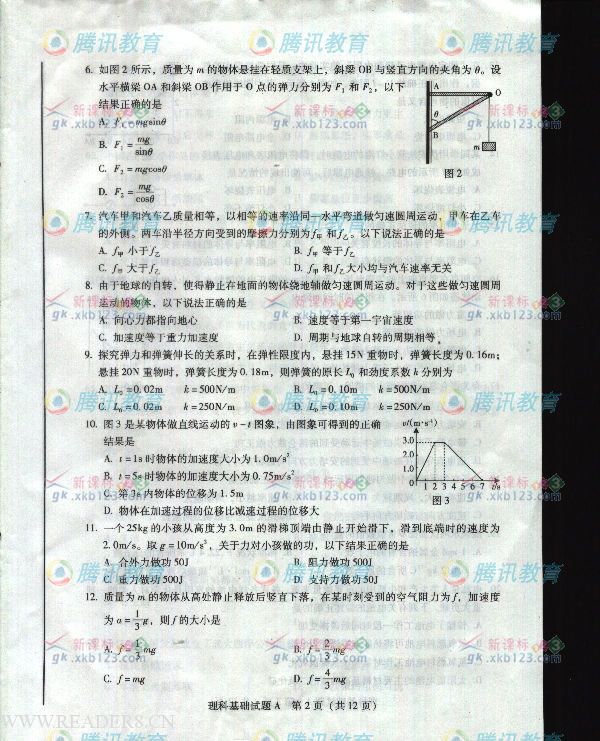 6. 如图 2 所示，质量为 m 的物体悬挂在轻质支架上，斜梁 OB 与竖直方向的夹角为 θ。设
水平横梁 OA 和斜梁 OB 作用于 O 点的弹力分别为 F₁ 和 F₂，以下
结果正确的是
A. F₁ = mgsinθ
B. F₁ = mg/sinθ
C. F₂ = mgcosθ
D. F₂ = mg/cosθ
A
O
θ
B
m
图 2
7. 汽车甲和汽车乙质量相等，以相等的速率沿同一水平弯道做匀速圆周运动，甲车在乙车
的外侧。两车沿半径方向受到的摩擦力分别为 f甲 和 f乙。以下说法正确的是
A. f甲 小于 f乙 B. f甲 等于 f乙
C. f甲 大于 f乙 D. f甲 和 f乙 大小均与汽车速率无关
8. 由于地球的自转，使得静止在地面的物体绕地轴做匀速圆周运动。对于这些做匀速圆周
运动的物体，以下说法正确的是
A. 向心力都指向地心 B. 速度等于第一宇宙速度
C. 加速度等于重力加速度 D. 周期与地球自转的周期相等
9. 探究弹力和弹簧伸长的关系时，在弹性限度内，悬挂 15N 重物时，弹簧长度为 0.16m；
悬挂 20N 重物时，弹簧长度为 0.18m，则弹簧的原长 L₀ 和劲度系数 k 分别为
A. L₀ = 0.02m k = 500N/m B. L₀ = 0.10m k = 500N/m
C. L₀ = 0.02m k = 250N/m D. L₀ = 0.10m k = 250N/m
10. 图 3 是某物体做直线运动的 v－t 图象，由图象可得到的正确
结果是
A. t = 1s 时物体的加速度大小为 1.0m/s²
B. t = 5s 时物体的加速度大小为 0.75m/s²
C. 第 3s 内物体的位移为 1.5m
D. 物体在加速过程的位移比减速过程的位移大
v/(m·s⁻¹)
3.0
2.0
1.0
0 1 2 3 4 5 6 7 t/s
图 3
11. 一个 25kg 的小孩从高度为 3.0m 的滑梯顶端由静止开始滑下，滑到底端时的速度为
2.0m/s。取 g = 10m/s²，关于力对小孩做的功，以下结果正确的是
A. 合外力做功 50J B. 阻力做功 500J
C. 重力做功 500J D. 支持力做功 50J
12. 质量为 m 的物体从高处静止释放后竖直下落，在某时刻受到的空气阻力为 f，加速度
为 a = 1/3 g，则 f 的大小是
A. f = 1/3 mg B. f = 2/3 mg
C. f = mg D. f = 4/3 mg
理科基础试题 A 第 2 页（共 12 页）
腾讯教育
新课标
gk.xkb123.com
WWW.READERS.CN